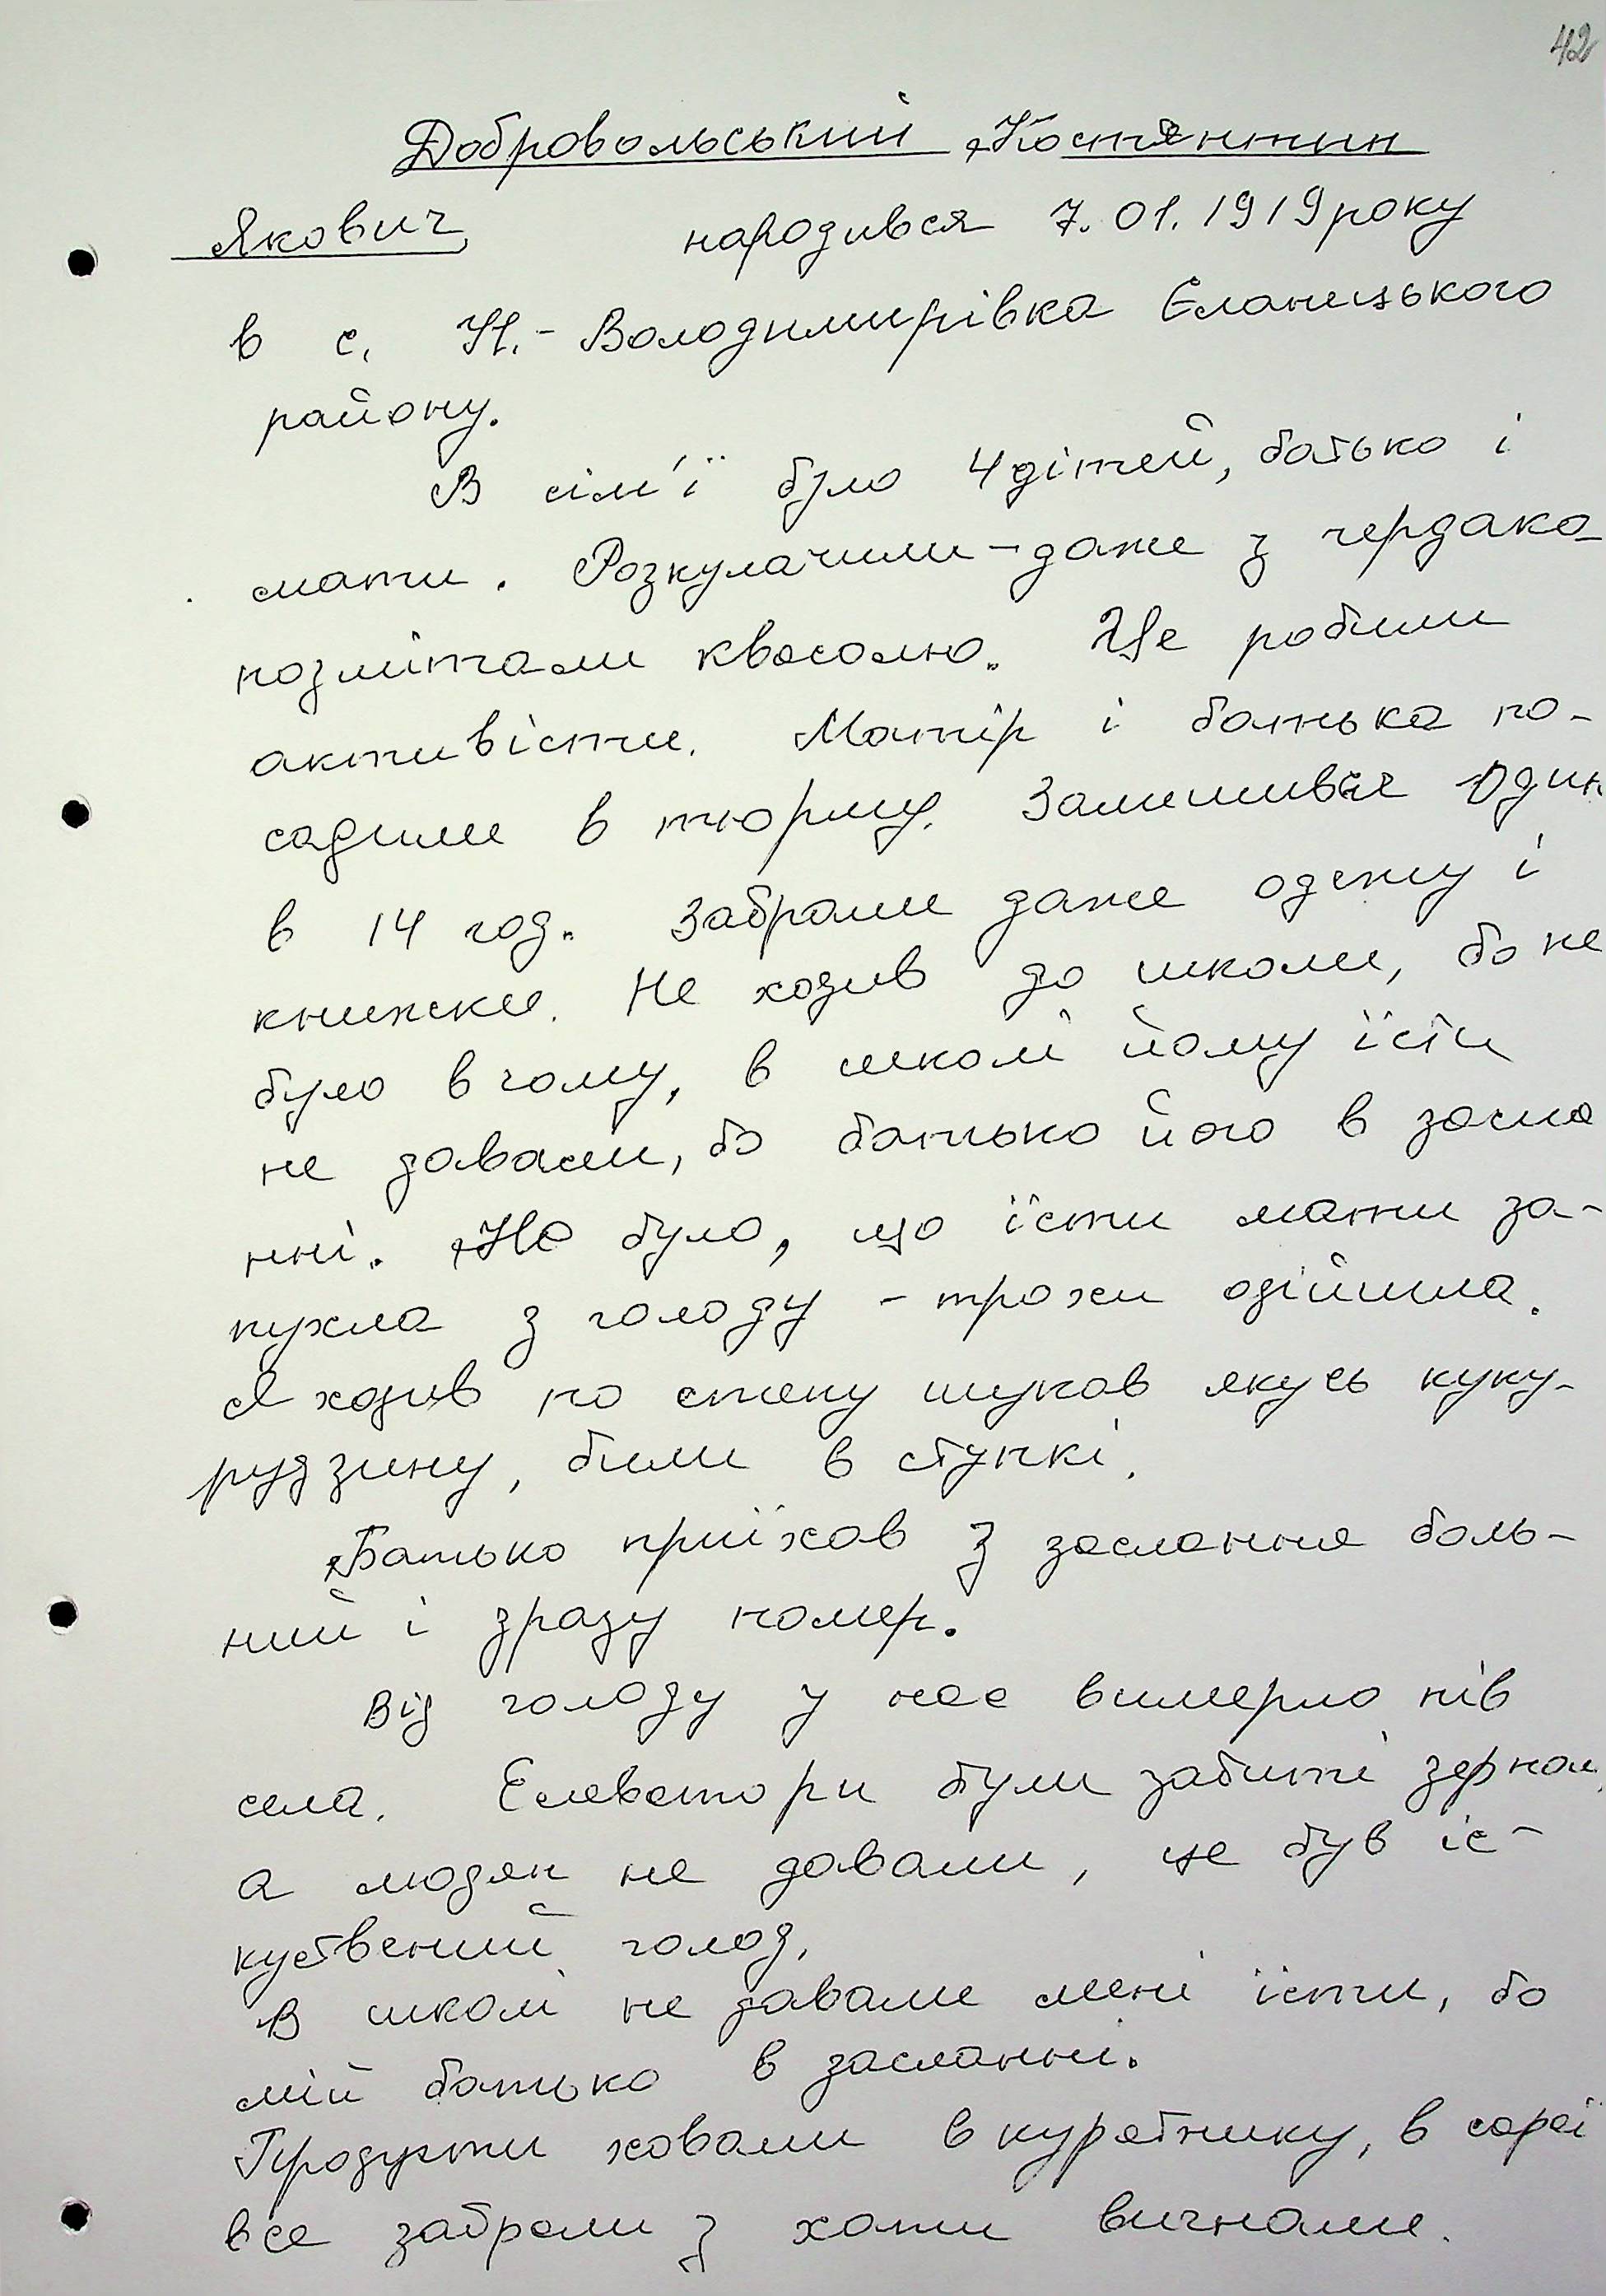 42
Добровольський Костянтин
Якович народився 7.01.1919 року
в с. Н.-Володимирівка Єланецького
району.
В сім'ї було 4 дітей, батько і
мати. Розкулачили - даже з чердака
позмітали квасолю. Це робили
активісти. Матір і батька по-
садили в тюрму. Залишився один
в 14 год. Забрали даже одежу і
книжки. Не ходив до школи, бо не
було в чому, в школі йому їсти
не давали, бо батько його в засла
нні. Не було, що їсти мати за-
пухла з голоду - трохи одійшла.
Я ходив по степу шукав якусь куку-
рудзину, били в ступкі.
Батько приїхав з заслання боль-
ний і зразу помер.
Від голоду у нас вимерло пів
села. Елеватори були забиті зерном,
а людям не давали, це був іс-
куственний голод.
В школі не давали мені їсти, бо
мій батько в засланні.
Продукти ховали в курятнику, в сараї
все забрали з хати вигнали.